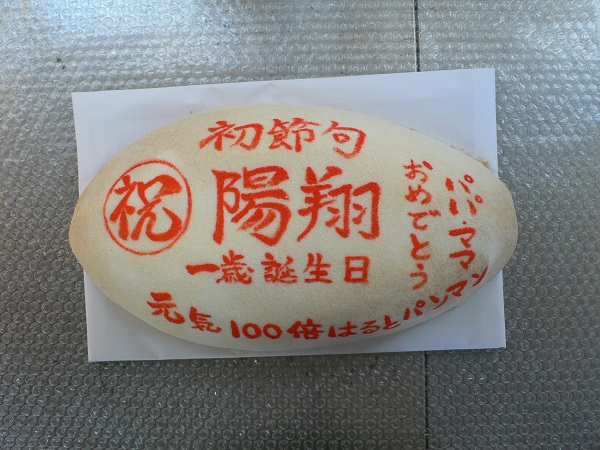 初節句
祝
陽翔
一歳誕生日
パパ・ママ
おめでとう
元気100倍はるとパンマン